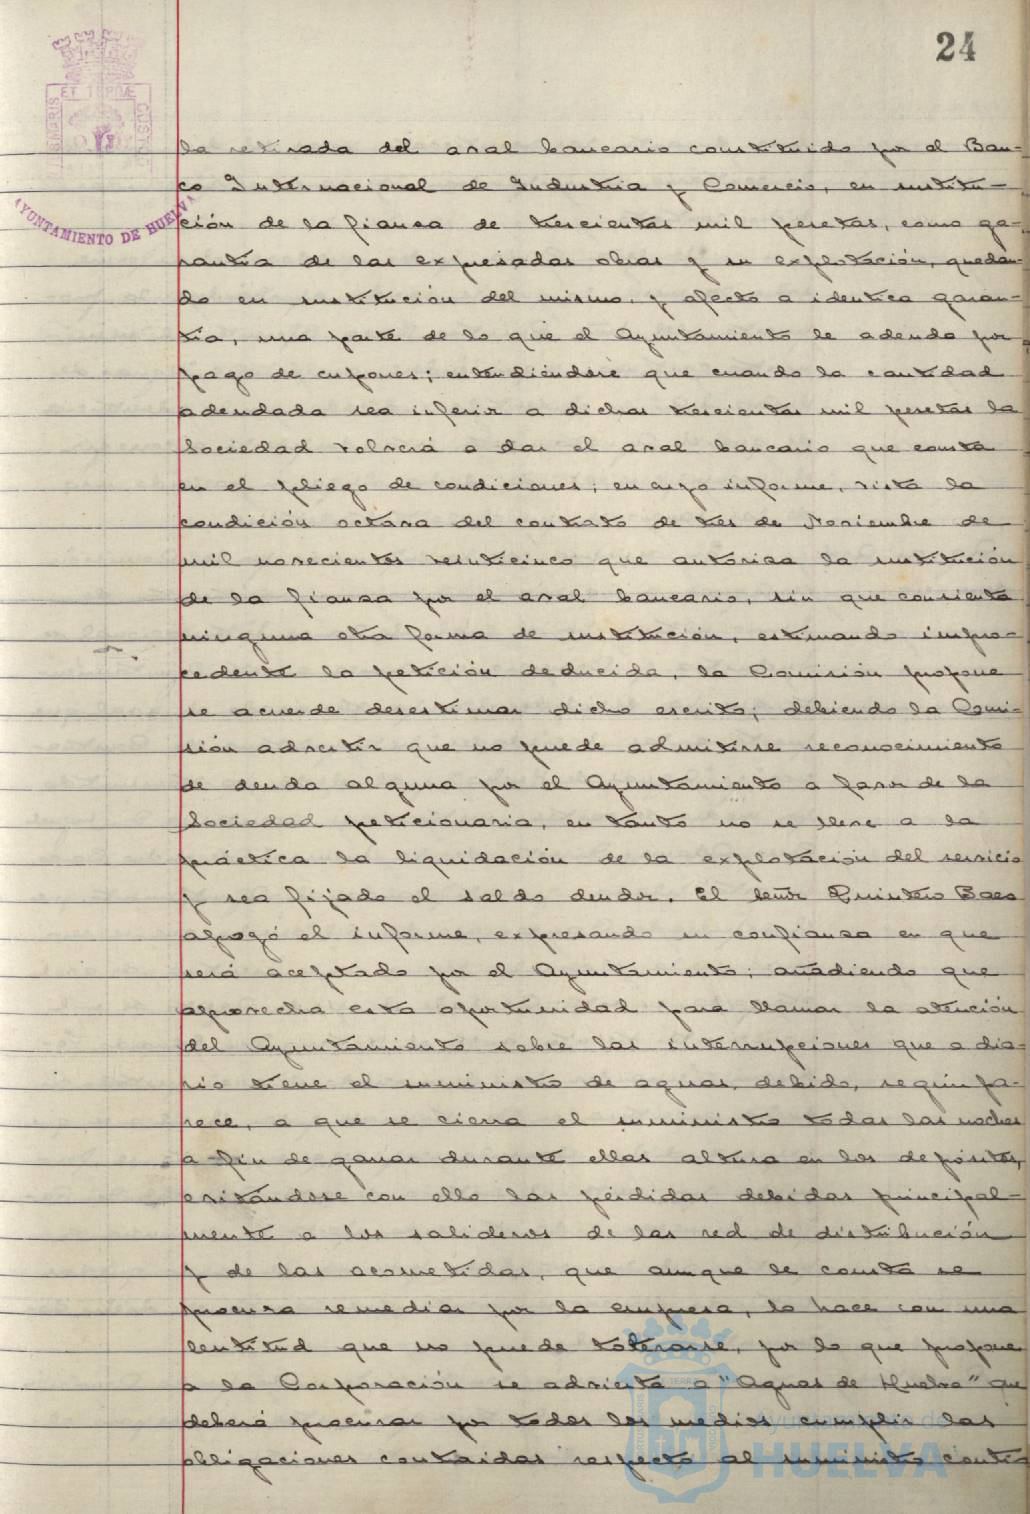 24
ET TERRÆ
CUSTODIA
AYUNTAMIENTO DE HUELVA
la retirada del aval bancario constituido por el Ban-
co Internacional de Industria y Comercio, en sustitu-
ción de la fianza de trescientas mil pesetas, como ga-
rantía de las expresadas obras y su explotación, quedan-
do en sustitución del mismo, y afecto a identica garan-
tía, una parte de lo que el Ayuntamiento le adeuda por
pago de cupones; entendiéndose que cuando la cantidad
adeudada sea inferior a dichas trescientas mil pesetas la
Sociedad volverá a dar el aval bancario que consta
en el pliego de condiciones; en cuyo informe, vista la
condición octava del contrato de tres de Noviembre de
mil novecientos veinticinco que autoriza la sustitución
de la fianza por el aval bancario, sin que consienta
ninguna otra forma de sustitución, estimando impro-
cedente la petición deducida, la Comisión propone
se acuerde desestimar dicho escrito; debiendo la Comi-
sión advertir que no puede admitirse reconocimiento
de deuda alguna por el Ayuntamiento a favor de la
Sociedad peticionaria, en tanto no se lleve a la
práctica la liquidación de la explotación del servicio
y sea fijado el saldo deudor. El señor Quintero Baez
apoyó el informe, expresando su confianza en que
será aceptado por el Ayuntamiento; añadiendo que
aprovecha esta oportunidad para llamar la atención
del Ayuntamiento sobre las interrupciones que a dia-
rio tiene el suministro de aguas, debido, según pa-
rece, a que se cierra el suministro todas las noches
a fin de ganar durante ellas altura en los depósitos,
evitándose con ello las pérdidas debidas principal-
mente a los salideros de las red de distribución
y de las acometidas, que aunque le consta se
procura remediar por la empresa, lo hace con una
lentitud que no puede tolerarse, por lo que propone
a la Corporación se advierta a "Aguas de Huelva" que
deberá procurar por todos los medios cumplir las
obligaciones contraidas respecto al suministro contra
Ayuntamiento de
HUELVA